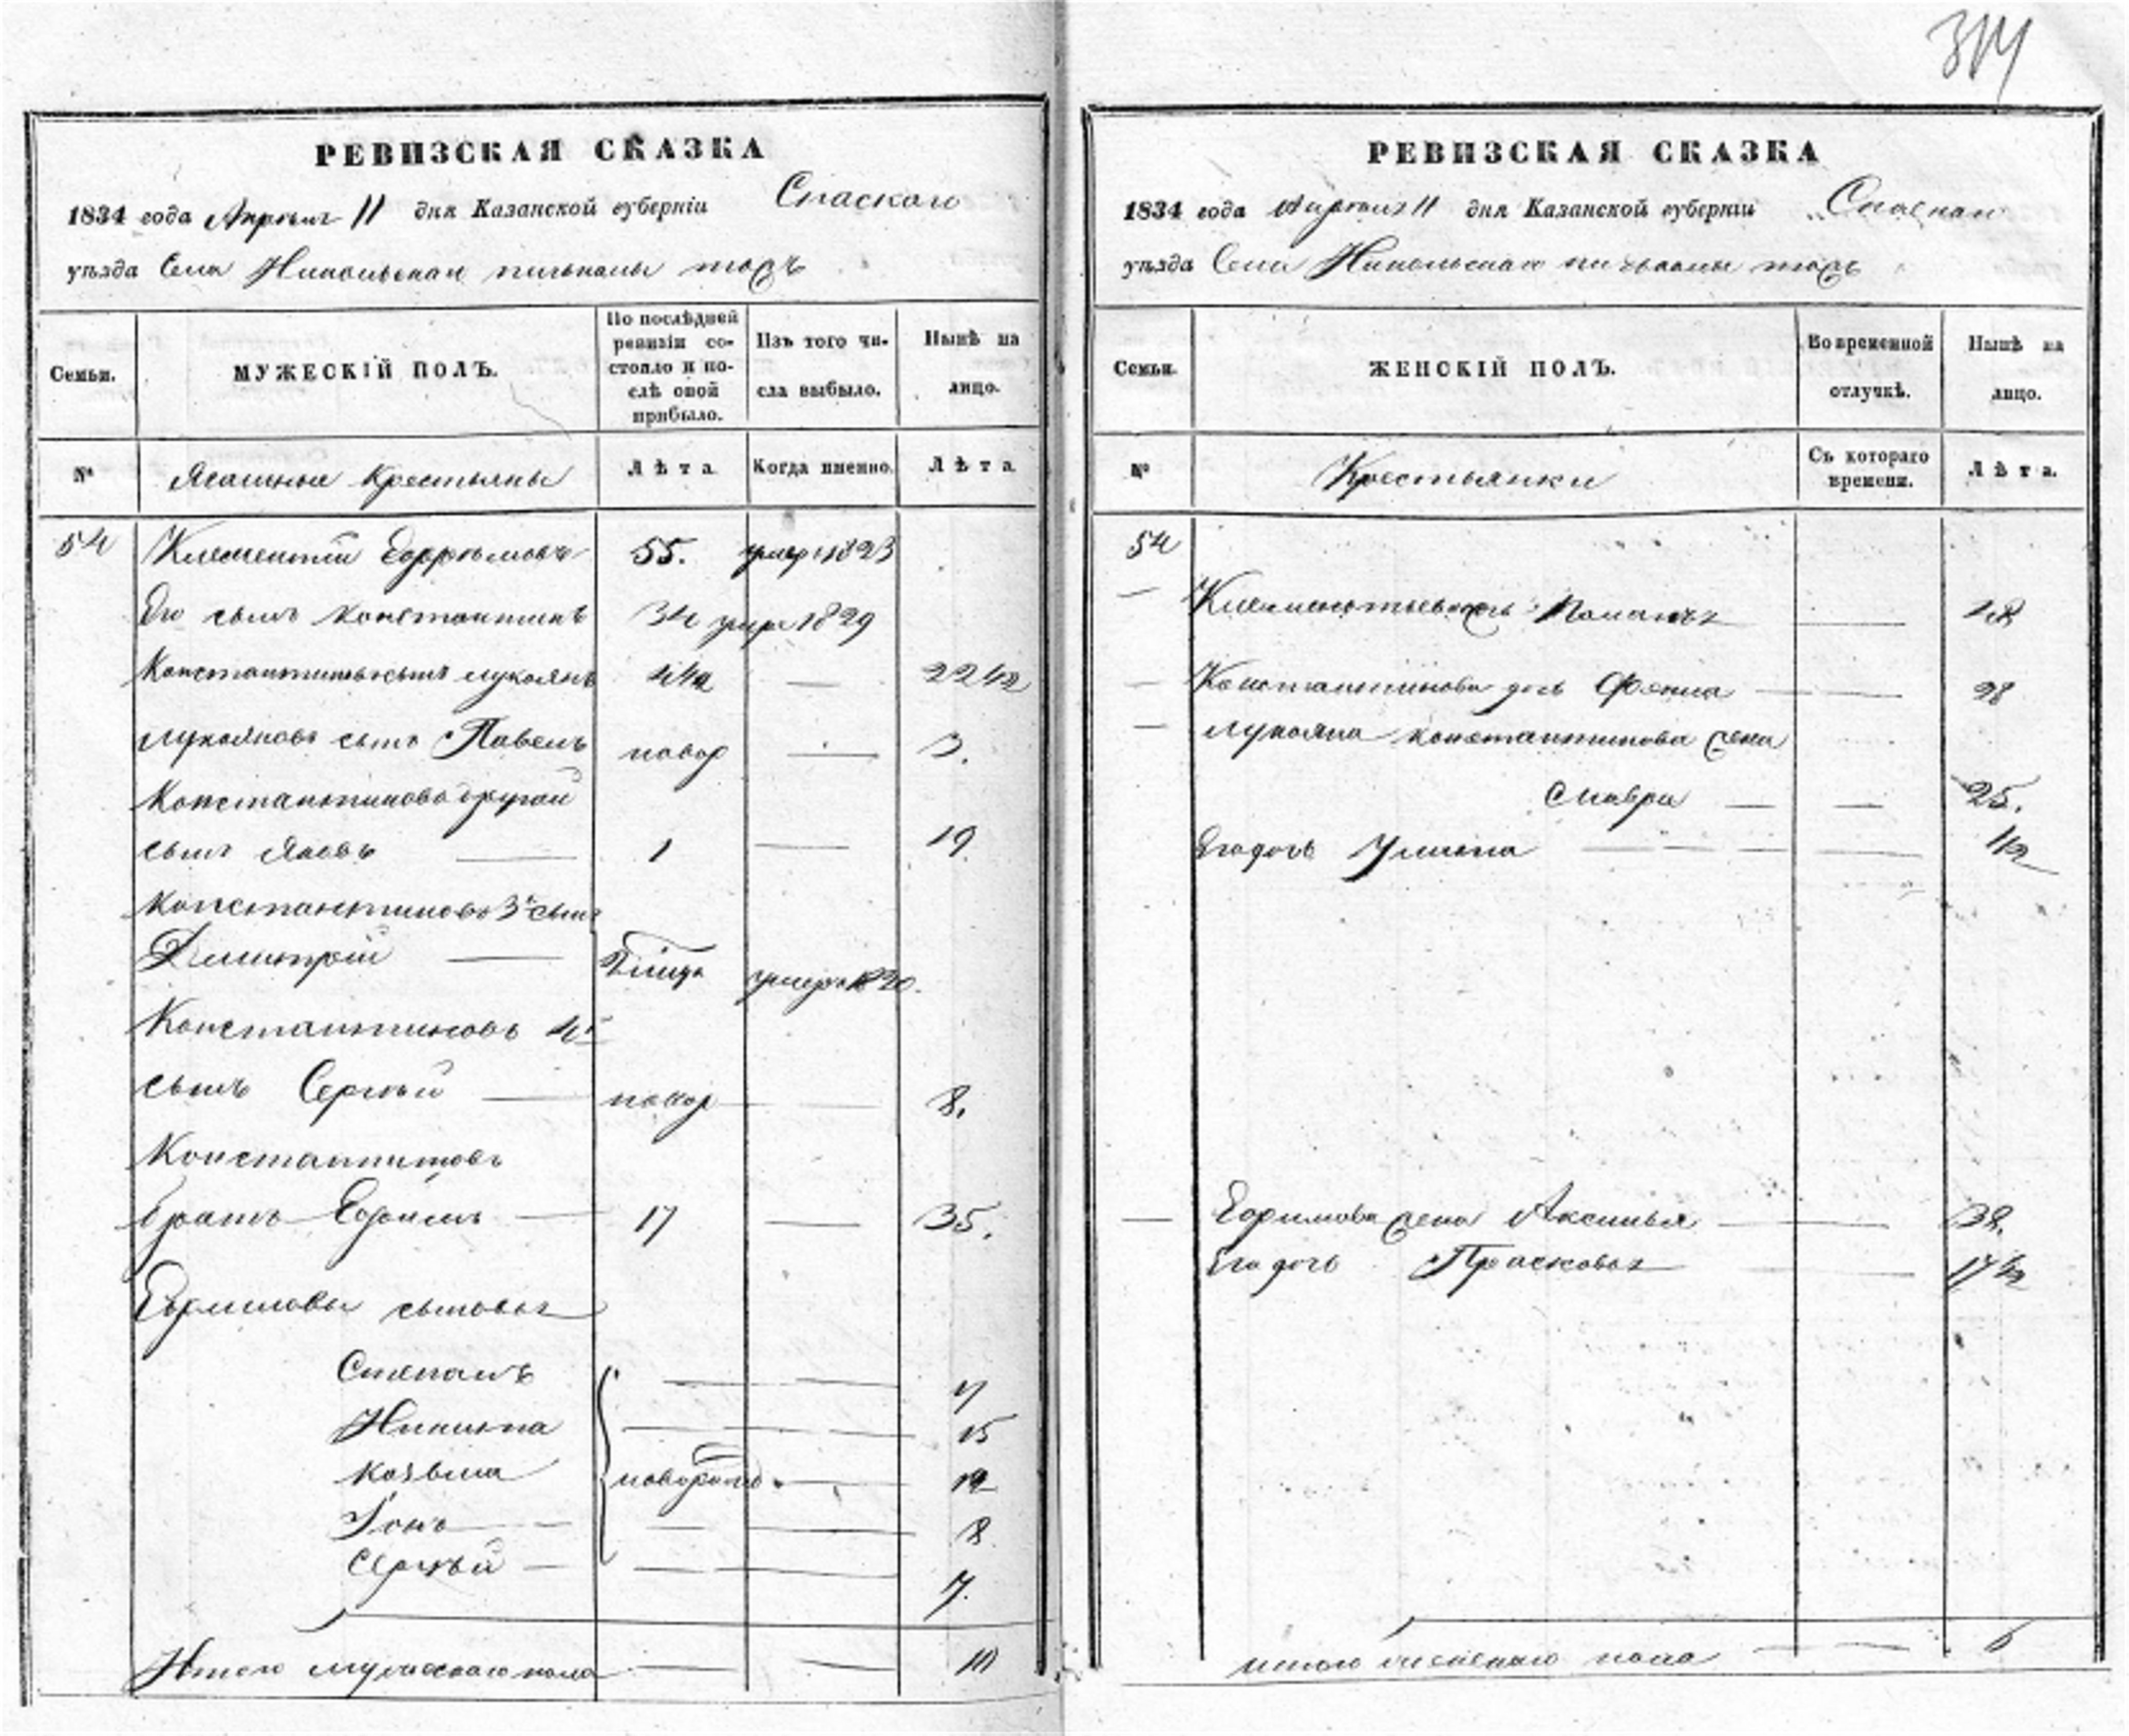 314
РЕВИЗСКАЯ СКАЗКА
1834 года Апреля 11 дня Казанской губерніи Спаского
уѣзда Села Никольскаго тожъ
Семьи.
МУЖЕСКІЙ ПОЛЪ.
По послѣдней ревизіи состояло и послѣ оной прибыло.
Изъ того числа выбыло.
Нынѣ на лицо.
№
Ясашныя Крестьяны
Лѣта
Когда именно.
Лѣта
54 Климентій Ефремовъ 55. умеръ 1823
Его сынъ Константинъ 34 умре 1829
Константиновъ сынъ Лукоянъ — 22 1/2
Лукояновъ сынъ Павелъ новор — 3.
Константиновъ другой
сынъ Яковъ — 1 — 19
Константиновъ 3й сынъ
Димитрій — умеръ
Константиновъ 4й
сынъ Сергѣй — новор — 8.
Константиновъ
братъ Ефимъ — 17 — 35.
Ефимовы сыновья
Степанъ —
Никита — 15
Козьма новорож —
Іонъ — 8
Сергѣй — 7.
Итого мужескаго пола — 10
РЕВИЗСКАЯ СКАЗКА
1834 года Апреля 11 дня Казанской губерніи Спаскаго
уѣзда Села Никольскаго тожъ
Семьи.
ЖЕНСКІЙ ПОЛЪ.
Во временной отлучкѣ.
Нынѣ на лицо.
№
Крестьянки
Съ котораго времени.
Лѣта.
54
— Климентьева —
— Константинова дочь — 28
— Лукояна Константинова жена
Мавра — 25.
Его дочь Ульяна — 1/2
— Ефимова жена Аксинья — 38.
Его дочь Прасковья — 17 1/2
итого женскаго пола — 6